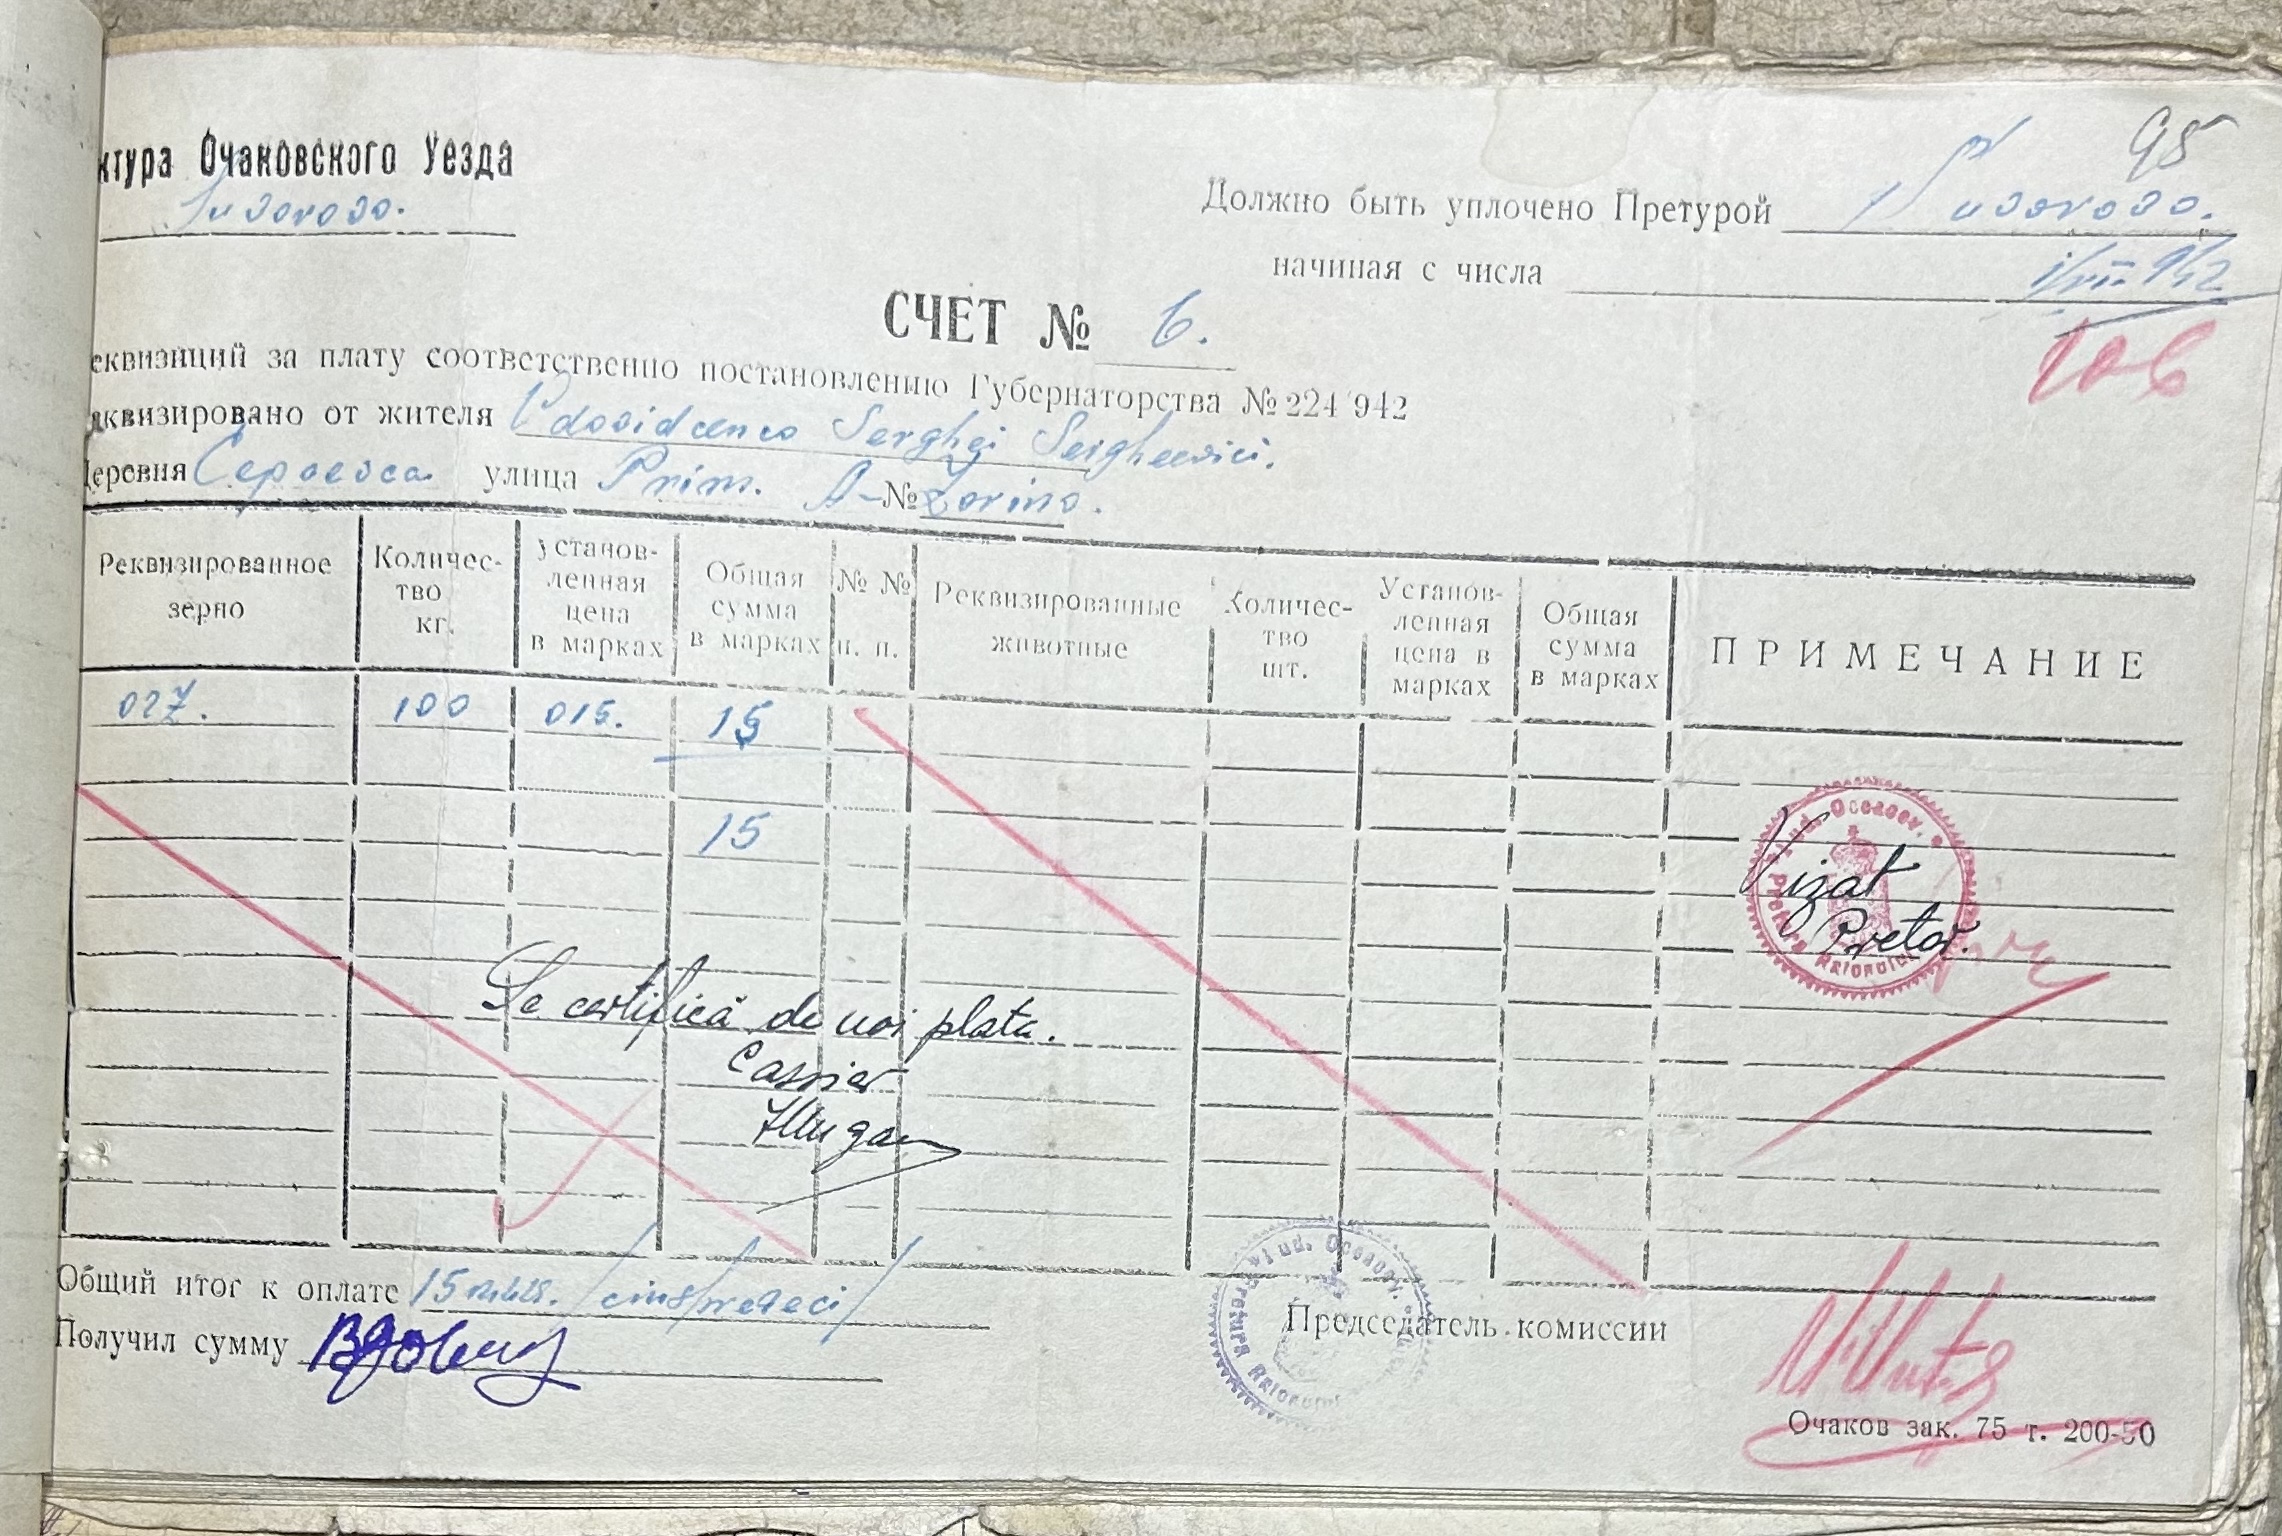 ктура Очаковского Уезда
Suvorovo.
95
Должно быть уплочено Претурой Suvorovo.
начиная с числа 1/VII. 942
106
СЧЕТ № 6.
еквизиций за плату соответственно постановлению Губернаторства № 224 942
квизировано от жителя Vdovidcenco Serghei Sergheevici.
Деревня Cepaevca улица Prim. № 
Реквизированное зерно
Количес-тво кг.
Установ-ленная цена в марках
Общая сумма в марках
№ № п. п.
Реквизированные животные
Количес-тво шт.
Установ-ленная цена в марках
Общая сумма в марках
ПРИМЕЧАНИЕ
orz. 100 015. 15
15
Jud. Oceacov. Pretura Raionului
Vizat
Pretor.
Se certifică de noi plata.
Cassier
Общий итог к оплате 15 mk. /cinsprezeci/
Получил сумму
Jud. Oceacov. Pretura Raionului
Председатель комиссии
Очаков зак. 75 т. 200-50